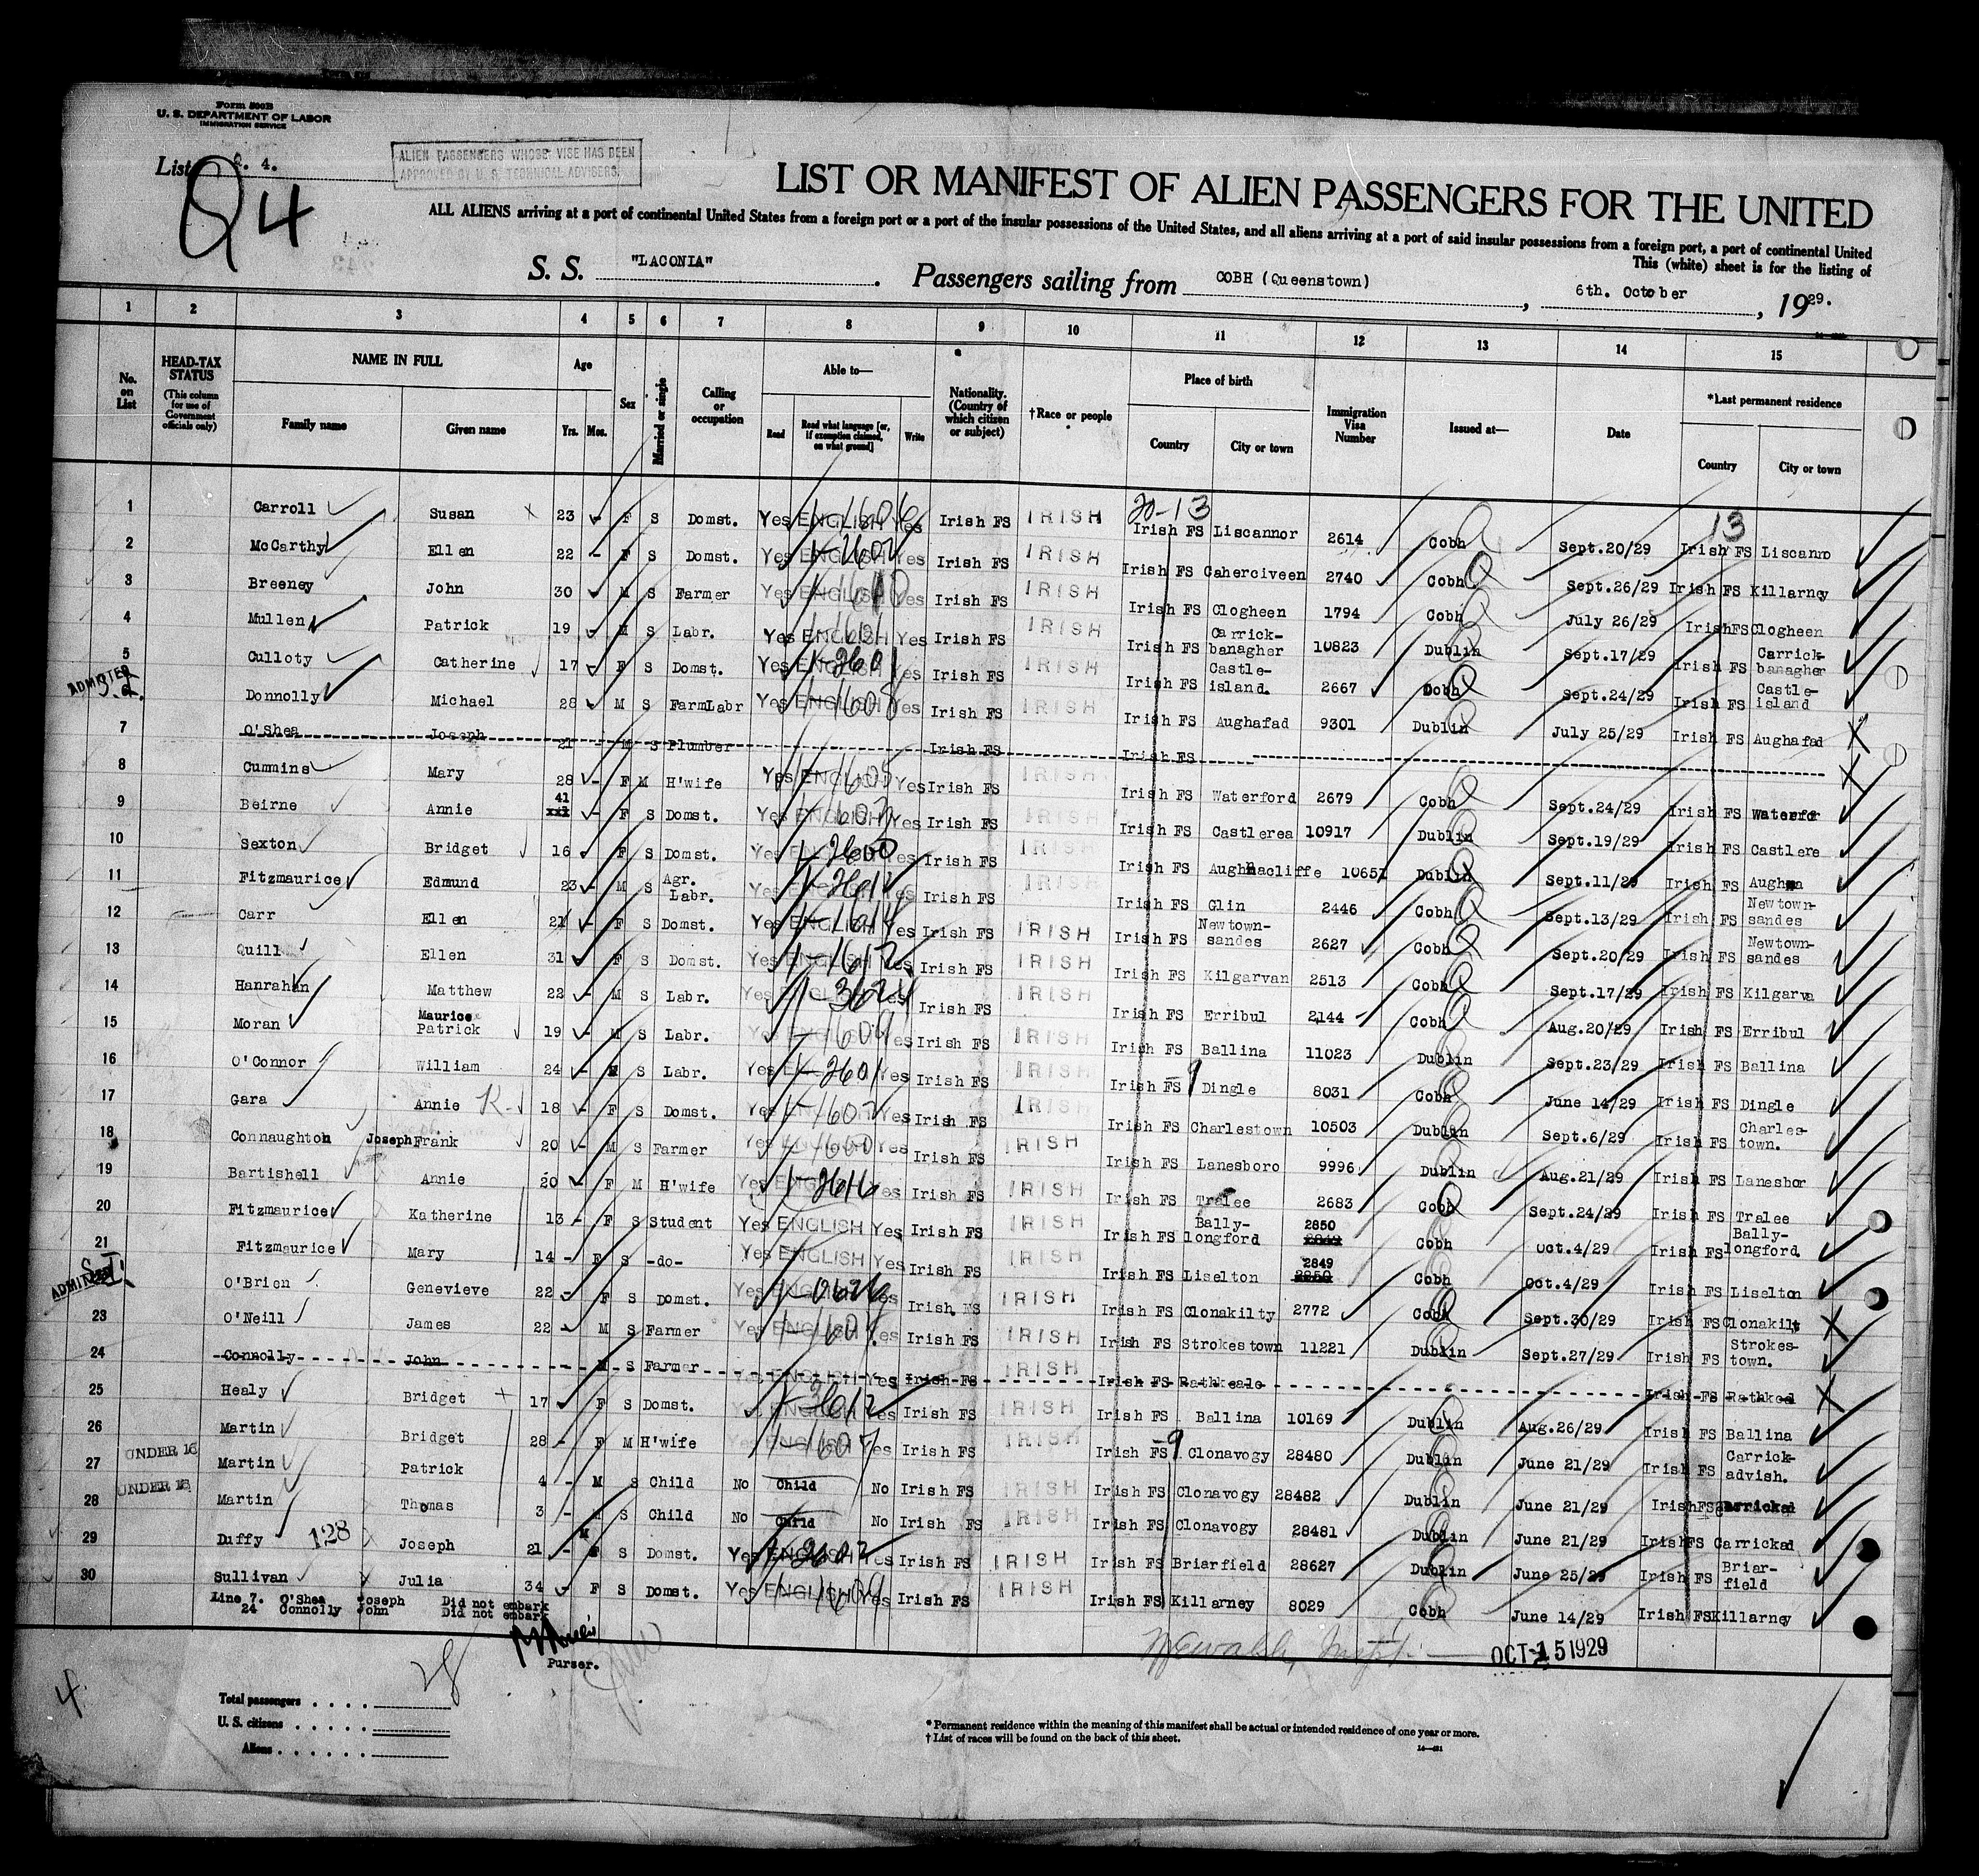 Form 500B
U. S. DEPARTMENT OF LABOR
IMMIGRATION SERVICE
List Q. 4.
Q4
ALIEN PASSENGERS WHOSE VISE HAS BEEN
APPROVED BY U. S. TECHNICAL ADVISERS.
LIST OR MANIFEST OF ALIEN PASSENGERS FOR THE UNITED
ALL ALIENS arriving at a port of continental United States from a foreign port or a port of the insular possessions of the United States, and all aliens arriving at a port of said insular possessions from a foreign port, a port of continental United
This (white) sheet is for the listing of
S. S. "LACONIA". Passengers sailing from COBH (Queenstown), 6th. October, 1929.
1 2 3 4 5 6 7 8 9 10 11 12 13 14 15
No. on List
HEAD-TAX STATUS (This column for use of Government officials only)
NAME IN FULL Family name Given name
Age Yrs. Mos.
Sex
Married or single
Calling or occupation
Able to— Read Read what language [or, if exemption claimed, on what ground] Write
Nationality. (Country of which citizen or subject)
†Race or people
Place of birth Country City or town
Immigration Visa Number
Issued at—
Date
*Last permanent residence Country City or town
20-13 13
1 Carroll Susan 23 - F S Domst. Yes ENGLISH Yes Irish FS IRISH Irish FS Liscannor 2614 Cobh Sept.20/29 Irish FS Liscanno
2 McCarthy Ellen 22 - F S Domst. Yes ENGLISH Yes Irish FS IRISH Irish FS Caherciveen 2740 Cobh Sept.26/29 Irish FS Killarney
3 Breeney John 30 M S Farmer Yes Yes Irish FS IRISH Irish FS Clogheen 1794 Cobh July 26/29 IrishFS Clogheen
4 Mullen Patrick 19 - M S Labr. Yes ENGLISH Yes Irish FS IRISH Irish FS Carrick-banagher 10823 Dublin Sept.17/29 Irish FS Carrick-banagher
5 Culloty Catherine 17 - F S Domst. Yes ENGLISH Yes Irish FS IRISH Irish FS Castle-island. 2667 Cobh Sept.24/29 Irish FS Castle-island
ADMITTED Donnolly Michael 28 M S FarmLabr Yes ENGLISH Yes Irish FS IRISH Irish FS Aughafad 9301 Dublin July 25/29 Irish FS Aughafad
7 O'Shea Joseph 21 - M S Plumber Irish FS Irish FS
8 Cummins Mary 28 - F M H'wife Yes ENGLISH Yes Irish FS IRISH Irish FS Waterford 2679 Cobh Sept.24/29 Irish FS Waterfor
9 Beirne Annie 41 - F S Domst. Yes ENGLISH Yes Irish FS IRISH Irish FS Castlerea 10917 Dublin Sept.19/29 Irish FS Castlere
10 Sexton Bridget 16 F S Domst. Yes Yes Irish FS IRISH Irish FS Aughnacliffe 10651 Dublin Sept.11/29 Irish FS Aughna
11 Fitzmaurice Edmund 23 - M S Agr. Labr. Yes ENGLISH Yes Irish FS IRISH Irish FS Glin 2446 Cobh Sept.13/29 Irish FS Newtown-sandes
12 Carr Ellen 21 - F S Domst. Yes ENGLISH Yes Irish FS IRISH Irish FS Newtown-sandes 2627 Cobh Sept.20/29 Irish FS Newtown-sandes
13 Quill Ellen 31 F S Domst. Yes ENGLISH Yes Irish FS IRISH Irish FS Kilgarvan 2513 Cobh Sept.17/29 Irish FS Kilgarva
14 Hanrahan Matthew 22 - M S Labr. Yes ENGLISH Yes Irish FS IRISH Irish FS Erribul 2144 Cobh Aug.20/29 Irish FS Erribul
15 Moran Maurice Patrick 19 - M S Labr. Yes ENGLISH Yes Irish FS IRISH Irish FS Ballina 11023 Dublin Sept.23/29 Irish FS Ballina
16 O'Connor William 24 - M S Labr. Yes Yes Irish FS IRISH Irish FS -9 Dingle 8031 Cobh June 14/29 Irish FS Dingle
17 Gara Annie 18 - F S Domst. Yes ENGLISH Yes Irish FS IRISH Irish FS Charlestown 10503 Dublin Sept.6/29 Irish FS Charles-town.
18 Connaughton Joseph Frank 20 - M S Farmer Yes ENGLISH Yes Irish FS IRISH Irish FS Lanesboro 9996 Dublin Aug.21/29 Irish FS Lanesbor
19 Bartishell Annie 20 - F M H'wife Yes ENGLISH Yes Irish FS IRISH Irish FS Tralee 2683 Cobh Sept.24/29 Irish FS Tralee
20 Fitzmaurice Katherine 13 - F S Student Yes ENGLISH Yes Irish FS IRISH Irish FS Bally-longford 2850 Cobh Oct.4/29 Irish FS Bally-longford
21 Fitzmaurice Mary 14 - F S -do- Yes ENGLISH Yes Irish FS IRISH Irish FS Liselton 2849 2850 Cobh Oct.4/29 Irish FS Liselton
ADMITTED S.I. O'Brien Genevieve 22 - F S Domst. Yes ENGLISH Yes Irish FS IRISH Irish FS Clonakilty 2772 Cobh Sept.30/29 Irish FS Clonakilt
23 O'Neill James 22 - M S Farmer Yes ENGLISH Yes Irish FS IRISH Irish FS Strokestown 11221 Dublin Sept.27/29 Irish FS Strokes-town.
24 Connolly John - M S Farmer ENGLISH Yes Irish FS IRISH Irish FS Rathkeale Irish FS Rathkea
25 Healy Bridget 17 F S Domst. Yes ENGLISH Yes Irish FS IRISH Irish FS Ballina 10169 Dublin Aug.26/29 Irish FS Ballina
26 Martin Bridget 28 - F M H'wife ENGLISH Yes Irish FS IRISH Irish FS -9 Clonavogy 28480 Dublin June 21/29 Irish FS Carrick-advish.
UNDER 16 27 Martin Patrick 4 - M S Child No Child No Irish FS IRISH Irish FS Clonavogy 28482 Dublin June 21/29 IrishFS Carrickad
UNDER 16 28 Martin Thomas 3 - M S Child No Child No Irish FS IRISH Irish FS Clonavogy 28481 Dublin June 21/29 IrishFS Carrickad
29 Duffy 128 Joseph 21 - M S Domst. Yes ENGLISH Yes Irish FS IRISH Irish FS Briarfield 28627 Dublin June 25/29 Irish FS Briar-field
30 Sullivan Julia 34 - F S Domst. Yes ENGLISH Yes Irish FS IRISH Irish FS Killarney 8029 Cobh June 14/29 Irish FS Killarney
Line 7. O'Shea Joseph Did not embark
24 Connolly John Did not embark
Purser.
OCT 15 1929
28
4
Total passengers
U. S. citizens
Aliens
* Permanent residence within the meaning of this manifest shall be actual or intended residence of one year or more.
† List of races will be found on the back of this sheet.